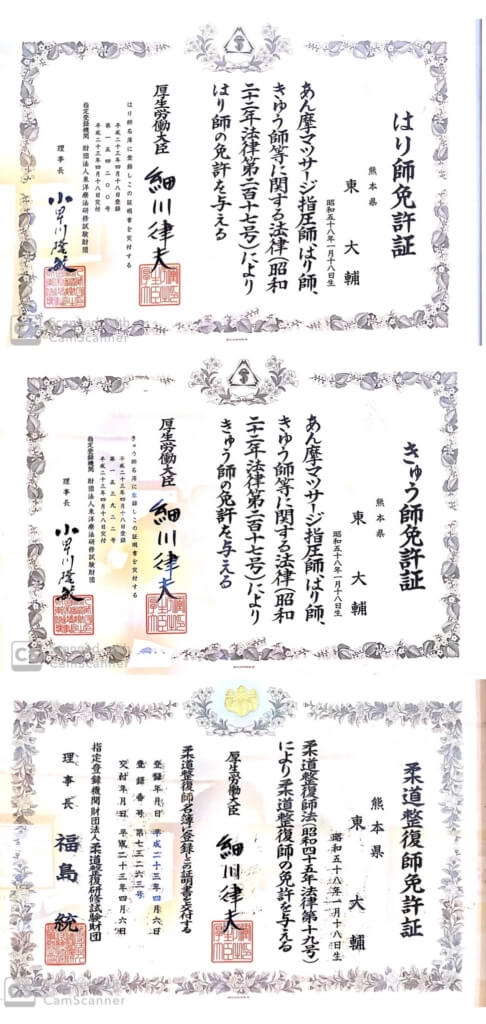 はり師免許証
熊本県
東 大輔
昭和五十八年一月十八日生
あん摩マツサージ指圧師、はり師、
きゆう師等に関する法律(昭和
二十二年法律第二百十七号)により
はり師の免許を与える
厚生労働大臣 細川律夫
はり師名簿に登録しこの証明書を交付する
平成二十三年四月十八日登録
第一五四二〇〇号
平成二十三年四月十八日交付
指定登録機関 財団法人東洋療法研修試験財団
理事長 小早川隆敏
CamScanner
きゅう師免許証
熊本県
東 大輔
昭和五十八年一月十八日生
あん摩マツサージ指圧師、はり師、
きゆう師等に関する法律(昭和
二十二年法律第二百十七号)により
きゆう師の免許を与える
厚生労働大臣 細川律夫
きゆう師名簿に登録しこの証明書を交付する
平成二十三年四月十八日登録
第一五三九二二号
平成二十三年四月十八日交付
指定登録機関 財団法人東洋療法研修試験財団
理事長 小早川隆敏
CamScanner
柔道整復師免許証
熊本県
東 大輔
昭和五十八年一月十八日生
柔道整復師法(昭和四十五年法律第十九号)
により柔道整復師の免許を与える
厚生労働大臣 細川律夫
柔道整復師名簿に登録しこの証明書を交付する
登録年月日 平成二十三年四月六日
登録番号 第七三二六三号
交付年月日 平成二十三年四月六日
指定登録機関財団法人柔道整復研修試験財団
理事長 福島統
CamScanner